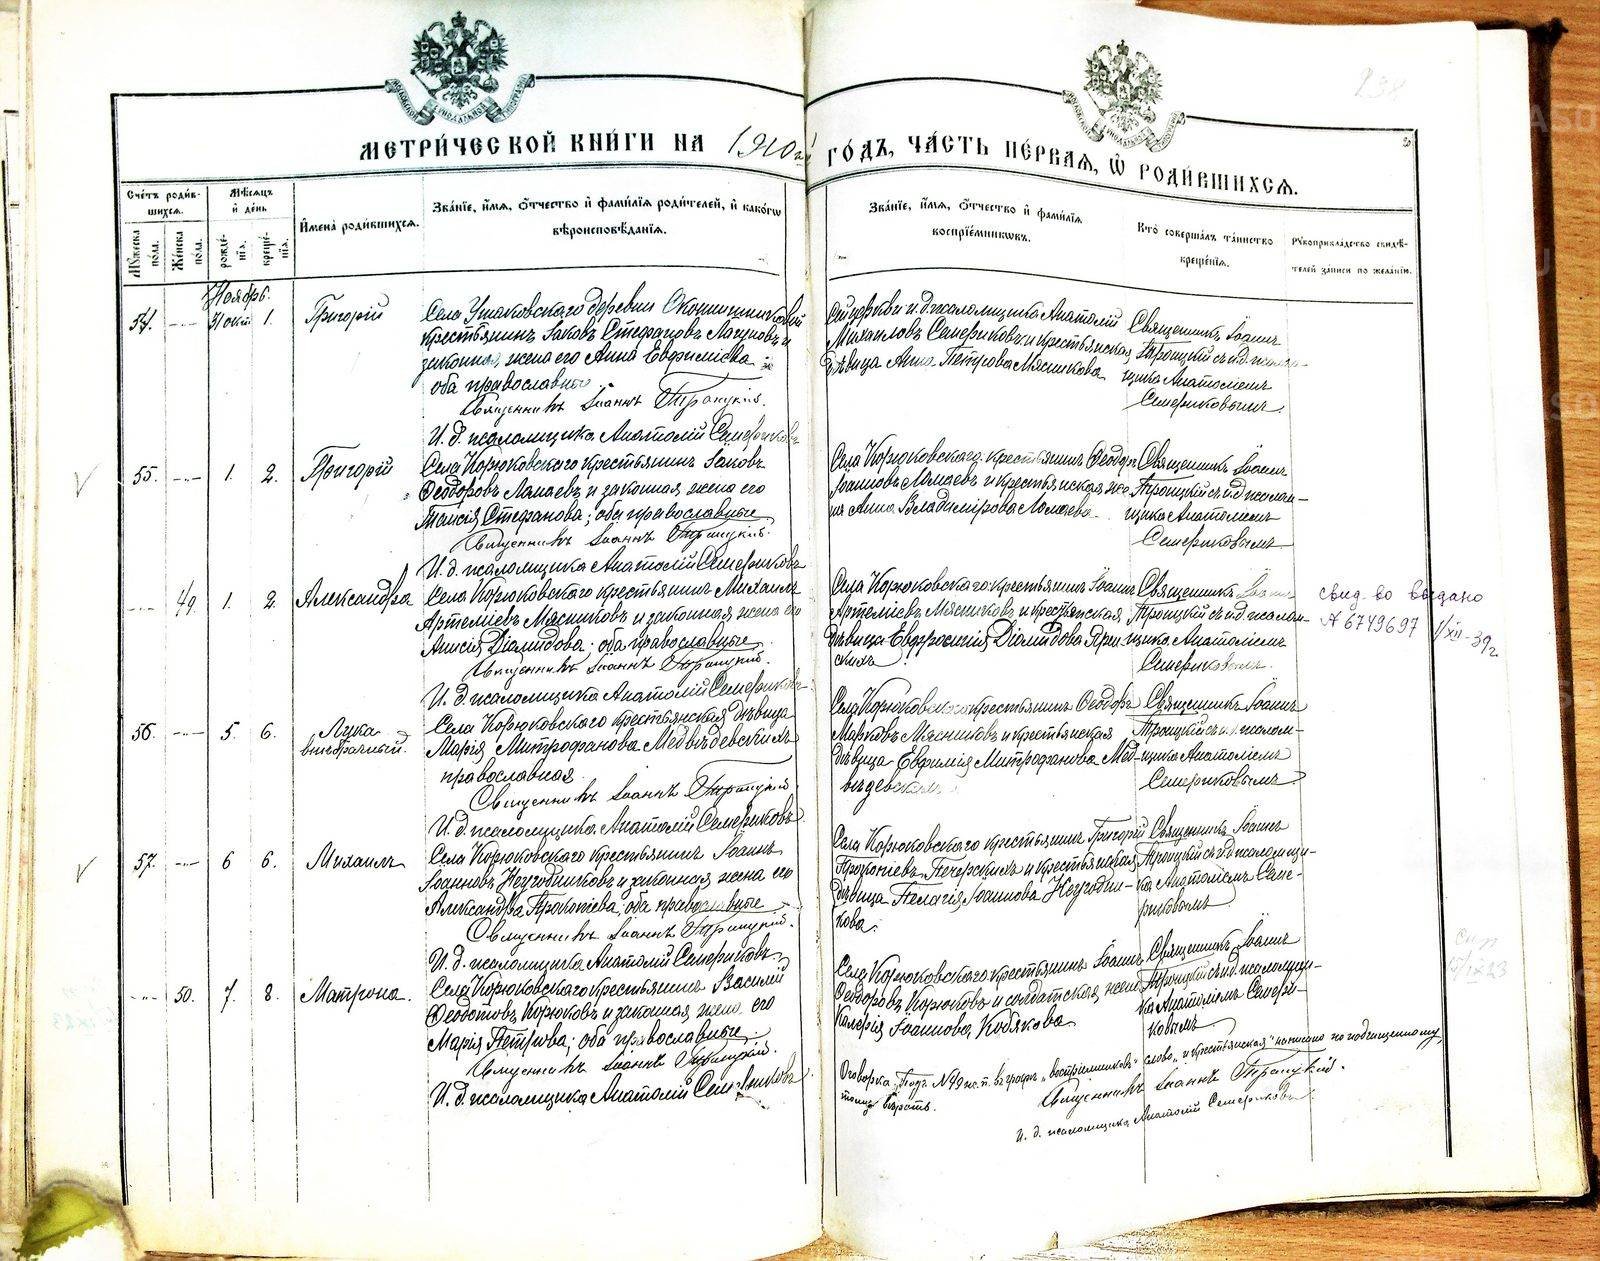 МЕТРИ́ЧЕСКОЙ КНИ́ГИ НА 1910 г. ГО́ДЪ, ЧА́СТЬ ПЕ́РВАѦ, Ѡ РОДИ́ВШИХСѦ.
Счетъ роди́вшихсѧ.
Мѣсѧцъ и день
Мꙋжеска пола.
Женска пола.
рожденїѧ.
крещенїѧ.
Имена роди́вшихсѧ.
Званїе, имѧ, отчество и фамилїѧ родителей, и какогѡ вѣроисповѣданїѧ.
Званїе, имѧ, отчество и фамилїѧ воспрїемникѡвъ.
Кто совершалъ таинство крещенїѧ.
Рꙋкоприкладство свидѣтелей записи по желанїю.
Ноябрь.
54. 31 окт 1. Григорій
Села Ушаковскаго деревни
крестьянинъ Іаковъ Стефановъ и
законная жена его Анна Евфиміева
оба православные
Священникъ Іоаннъ Троицкій.
И. д. псаломщика Анатолій Семериковъ
и. д. псаломщика Анатолій
Михаиловъ Семериковъ и крестьянская
дѣвица Анна Петрова Мясникова
Священникъ Іоаннъ
Троицкій съ и. д. псалом-
щика Анатоліемъ
Семериковымъ.
55. 1. 2. Григорій
Села Корюковскаго крестьянинъ Іаковъ
Ѳеодоровъ Ламаевъ и законная жена его
Таисія Стефанова; оба православные
Священникъ Іоаннъ Троицкій.
И. д. псаломщика Анатолій Семериковъ
Села Корюковскаго крестьянинъ Ѳеодоръ
Іоанновъ Ламаевъ и крестьянская же-
на Анна Владимірова Ломаева.
Священникъ Іоаннъ
Троицкій съ и. д. псалом-
щика Анатоліемъ
Семериковымъ
49. 1. 2. Александра
Села Корюковскаго крестьянинъ Михаилъ
Артеміевъ Мясниковъ и законная жена его
Анисія Діомидова; оба православные
Священникъ Іоаннъ Троицкій.
И. д. псаломщика Анатолій Семериковъ
Села Корюковскаго крестьянинъ Іоаннъ
Артеміевъ Мясниковъ и крестьянская
дѣвица Евфросинія Діомидова
скихъ
Священникъ Іоаннъ
Троицкій съ и. д. псалом-
щика Анатоліемъ
Семериковымъ.
свид-во выдано
№ 6749697 1/XII-39 г.
56. 5. 6. Лука
внѣбрачный.
Села Корюковскаго крестьянская дѣвица
Марія Митрофанова Медвѣдевскихъ
православная
Священникъ Іоаннъ Троицкій.
И. д. псаломщика Анатолій Семериковъ
Села Корюковскаго крестьянинъ Ѳеодоръ
Марковъ Мясниковъ и крестьянская
дѣвица Евфимія Митрофанова Мед-
вѣдевскихъ
Священникъ Іоаннъ
Троицкій съ и. д. псалом-
щика Анатоліемъ
Семериковымъ
57. 6 6. Михаилъ
Села Корюковскаго крестьянинъ Іоаннъ
Іоанновъ Неугодниковъ и законная жена его
Александра Прокопіева; оба православные
Священникъ Іоаннъ Троицкій.
И. д. псаломщика Анатолій Семериковъ
Села Корюковскаго крестьянинъ Григорій
Прокопіевъ Печерскихъ и крестьянская
дѣвица Пелагія Іоаннова Неугодни-
кова.
Священникъ Іоаннъ
Троицкій съ и. д. псаломщи-
ка Анатоліемъ Семе-
риковымъ
50. 7. 8. Матрона.
Села Корюковскаго крестьянинъ Василій
Ѳеодотовъ Корюковъ и законная жена его
Марія Петрова; оба православные.
Священникъ Іоаннъ Троицкій.
И. д. псаломщика Анатолій Семериковъ
Села Корюковскаго крестьянинъ Іоаннъ
Ѳеодоровъ Корюковъ и солдатская жена
Валерія Іоаннова Кобякова
Священникъ Іоаннъ
Троицкій съ и. д. псаломщи-
ка Анатоліемъ Семери-
ковымъ
15/IX 23
Оговорка. Подъ № 49 ж. п. въ графѣ „воспріемниковъ" слово „и крестьянская" написано по подчищенному,
тому вѣрить.
Священникъ Іоаннъ Троицкій.
И. д. псаломщика Анатолій Семериковъ